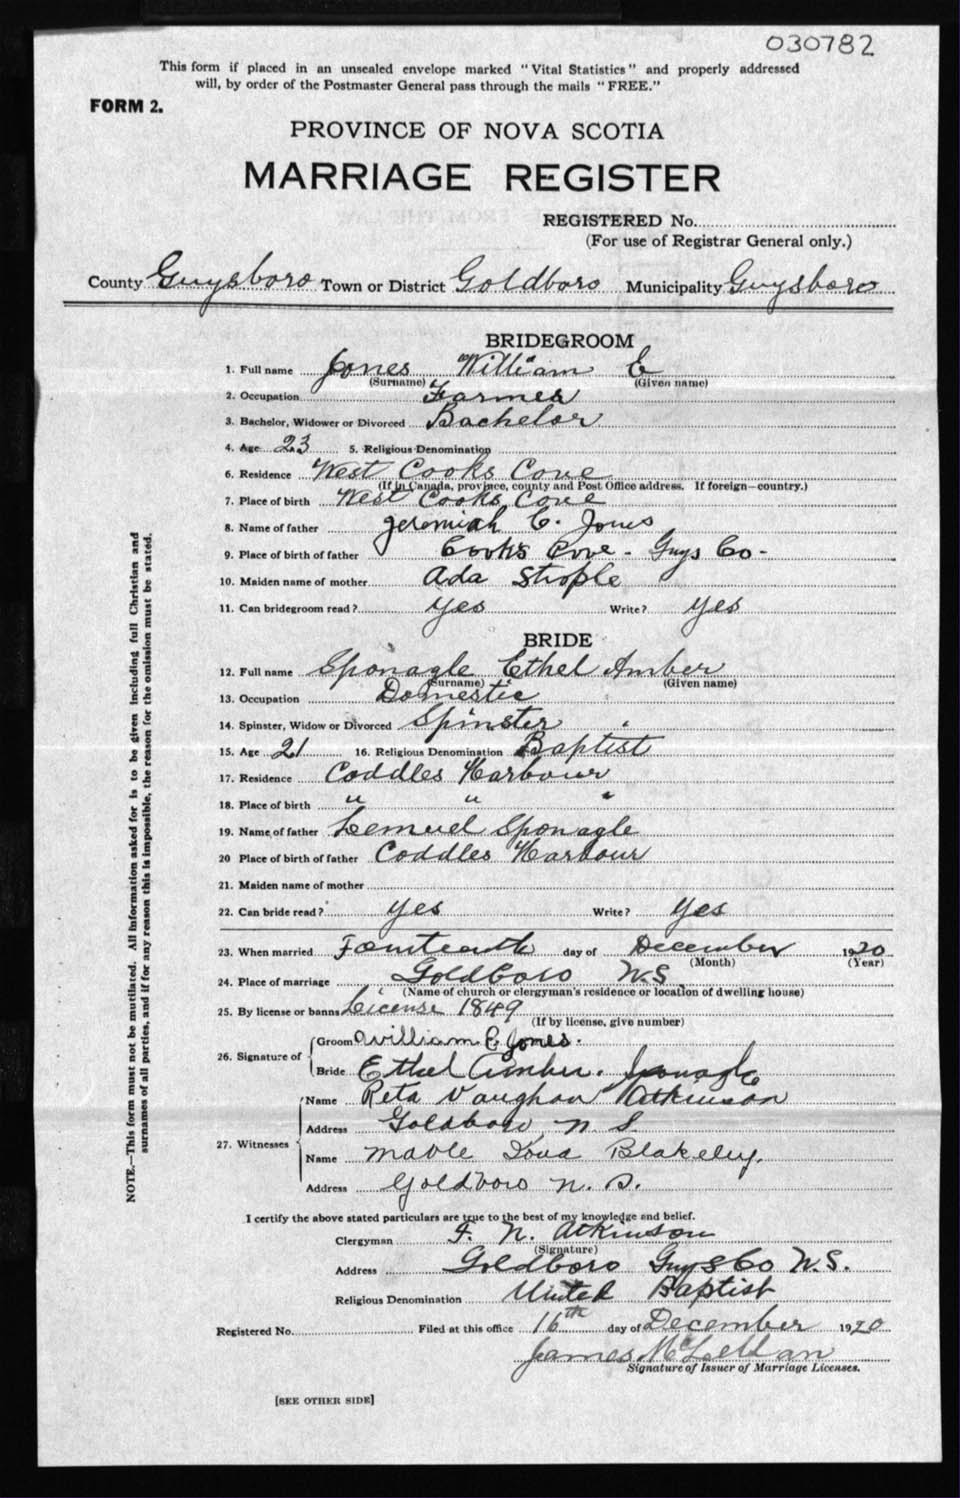 030782
This form if placed in an unsealed envelope marked "Vital Statistics" and properly addressed
will, by order of the Postmaster General pass through the mails "FREE."
FORM 2.
PROVINCE OF NOVA SCOTIA
MARRIAGE REGISTER
REGISTERED No.
(For use of Registrar General only.)
County Guysboro Town or District Goldboro Municipality Guysboro
BRIDEGROOM
1. Full name Jones William E
(Surname) (Given name)
2. Occupation Farmer
3. Bachelor, Widower or Divorced Bachelor
4. Age 23 5. Religious Denomination
6. Residence West Cooks Cove
(If in Canada, province, county and Post Office address. If foreign—country.)
7. Place of birth West Cooks Cove
8. Name of father Jeremiah C. Jones
9. Place of birth of father Cooks Cove - Guys Co -
10. Maiden name of mother Ada Strople
11. Can bridegroom read? yes Write? yes
BRIDE
12. Full name Sponagle Ethel Amber
(Surname) (Given name)
13. Occupation Domestic
14. Spinster, Widow or Divorced Spinster
15. Age 21 16. Religious Denomination Baptist
17. Residence Coddles Harbour
18. Place of birth " " "
19. Name of father Lemuel Sponagle
20 Place of birth of father Coddles Harbour
21. Maiden name of mother
22. Can bride read? yes Write? yes
23. When married Fourteenth day of December 1920
(Month) (Year)
24. Place of marriage Goldboro N.S
(Name of church or clergyman's residence or location of dwelling house)
25. By license or banns License 1849
(If by license, give number)
26. Signature of Groom William E Jones.
Bride Ethel Amber. Sponagle
27. Witnesses Name Reta Vaughan Atkinson
Address Goldboro, N. S
Name Mable Iona Blakeley.
Address Goldboro N. S.
I certify the above stated particulars are true to the best of my knowledge and belief.
Clergyman F. N. Atkinson
(Signature)
Address Goldboro Guys Co N.S.
Religious Denomination United Baptist
Registered No. Filed at this office 16th day of December 1920
James McLellan
Signature of Issuer of Marriage Licenses.
[SEE OTHER SIDE]
NOTE.—This form must not be mutilated. All information asked for is to be given including full Christian and
surnames of all parties, and if for any reason this is impossible, the reason for the omission must be stated.